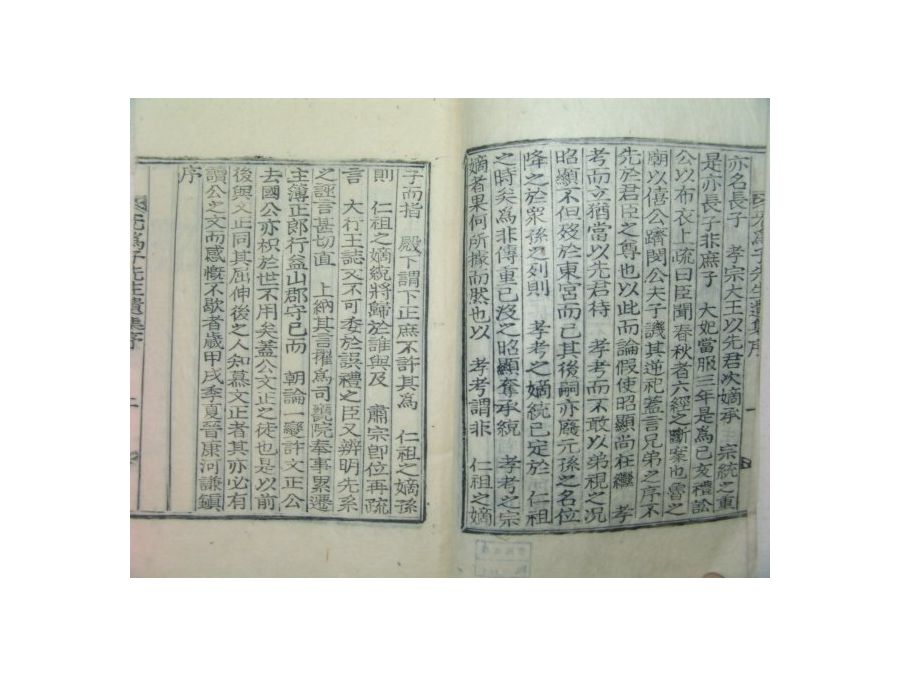 亦名長子　孝宗大王以先君次嫡承　宗統之重
是亦長子非庶子　大妃當服三年是爲已亥禮訟
公以布衣上疏曰臣聞春秋者六經之斷案也魯之
朝以僖公躋閔公夫子譏其逆祀蓋言兄弟之序不
先於君臣之尊也以此而論假使昭顯尚在繼　孝
考而立猶當以先君待　孝考而不敢以弟視之况
昭顯不但歿於東宮而已其後嗣亦廢元孫之名位
降之於衆孫之列則　孝考之嫡統已定於　仁祖
之時矣爲非傳重已沒之昭顯奪承統　孝考之宗
嫡者果何所據而然也以　孝考謂非　仁祖之嫡
子而指　殿下謂下正庶不許其爲　仁祖之嫡孫
則　仁祖之嫡統將歸於誰與及　肅宗卽位再疏
言　大行王誌文不可委於誤禮之臣又辨明先系
之誣言甚切直　上納其言擢爲司饔院奉事累遷
主簿正郞行益山郡守已而　朝論一變許文正公
去國公亦枳於世不用矣蓋公文正之徒也是以前
後與文正同其屈伸後之人知慕文正者其亦必有
讀公之文而感慨不歇者歲甲戌季夏晉康河謙鎭
序
先生遺集序